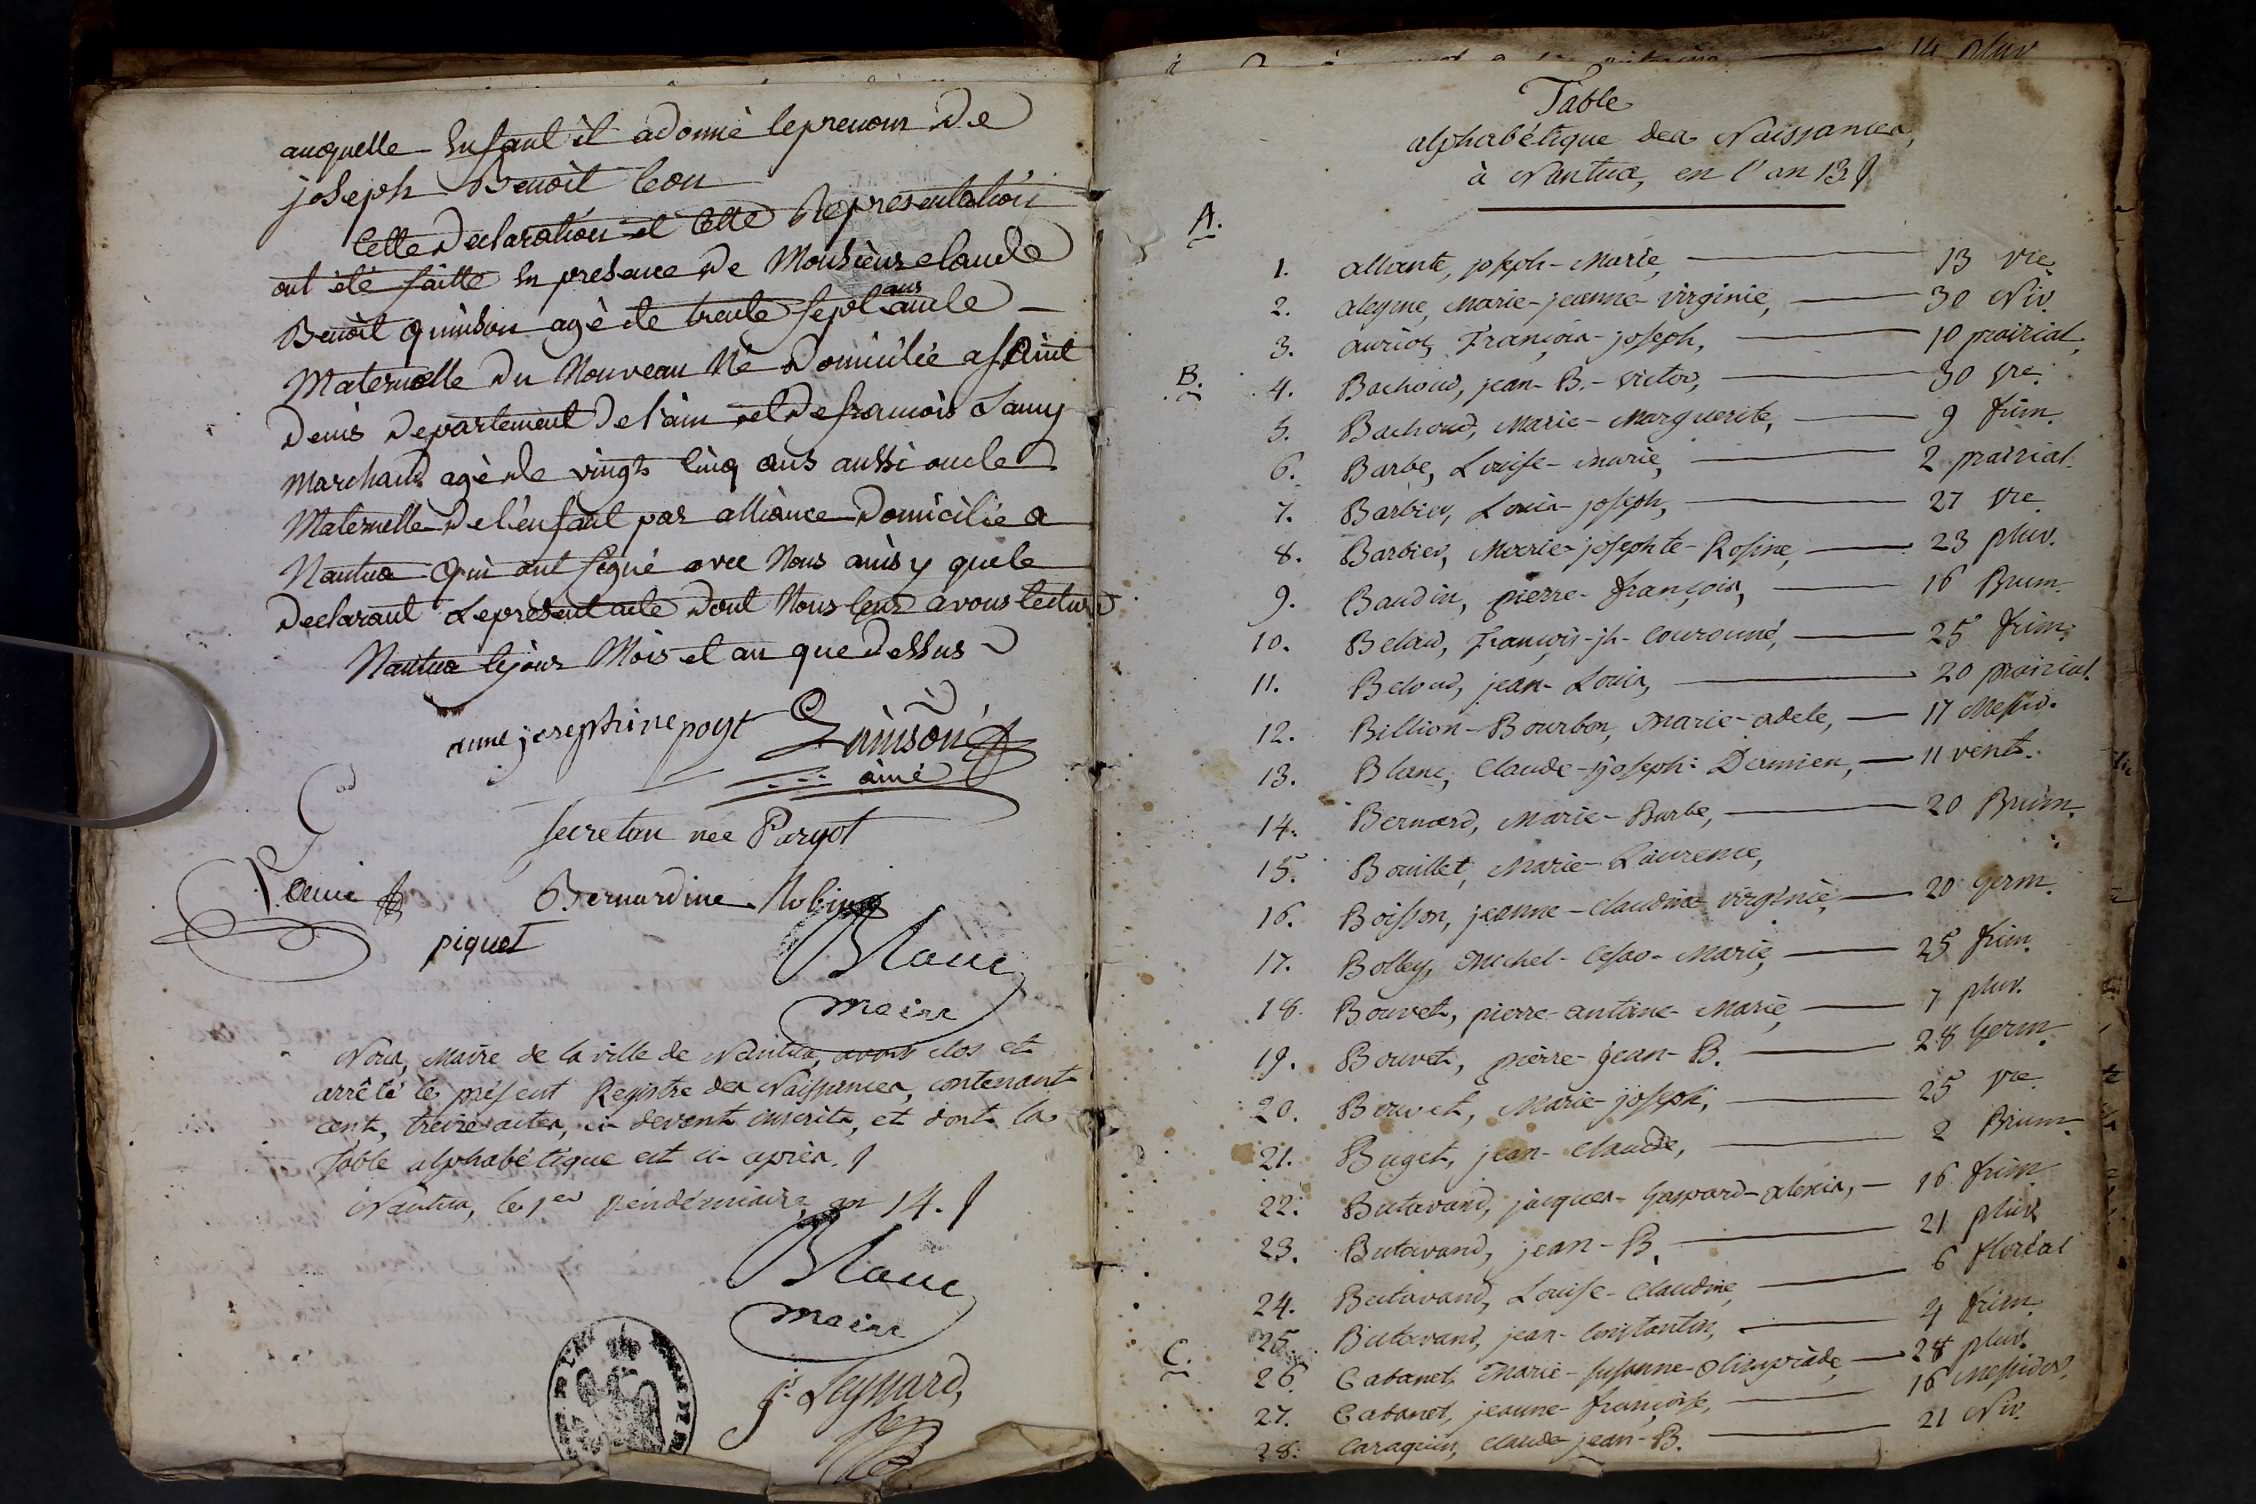 auquelle Enfant il adonné leprenom De
joseph Benoit leon
Cette Declaration et Cette Representation
ont été faitte En presence De Monsieur claude
Benoit quinson agé de trente sept ans oncle
Maternelle Du Nouveau Né Domicilié a saint
Denis Departement De l'ain et De francois Lamy
Marchand agé de vingt Cinq ans aussi oncle
Maternelle De l'enfant par alliance Domicilié a
Nantua Qui ont signé avec Nous ainsy que le
Declarant Le present acte Dont Nous leur avons lecture
Nantua le jour Mois et an que Dessus
anne josephine
Quinson
ainé
secretan née
Bernardine Robin
piquet
Blanc
maire
Nous, Maire de la ville de Nantua, avons clos et
arrêté le présent Registre des Naissances, contenant
cent, treize actes, ci-devant inscrits, et dont la
Table alphabétique est ci-après.
Nantua, le 1er vendémiaire an 14.
Blanc
maire
14 pluv
Table
alphabétique des Naissances,
à Nantua, en l'an 13
A.
1. allante, joseph-Marie, 13 vre
2. aleyme, Marie-jeanne-virginie, 30 Niv.
3. auriol, François-joseph, 10 prairial.
B. 4. Bachoud, jean-B.-victor, 30 vre.
5. Bachoud, Marie-Marguerite, 9 frim.
6. Barbe, Louise-Marie, 2 prairial.
7. Barbier, Louis-joseph, 27 vre
8. Barbier, Marie-josephte-Rosine, 23 pluv.
9. Baudin, pierre-françois, 16 Brum.
10. François-jh-Couronné, 25 frim.
11. Beloud, jean-Louis, 20 prairial.
12. Billion-Bourbon, Marie-adele, 17 Messid.
13. Blanc, Claude-joseph-Damien, 11 vent.
14. Bernard, Marie-Barbe, 20 Brum.
15. Bouillet, Marie-Laurence,
16. Boisson, jeanne-Claudine virginie, 20 Germ.
17. Bolley, Michel-Cesar-Marie, 25 frim.
18. Bouvet, pierre-antoine-Marie, 7 pluv.
19. Bouvet, pierre-jean-B. 28 Germ.
20. Bouvet, Marie-joseph, 25 vre.
21. Buget, jean-Claude, 2 Brum.
22. Butavand, jacques-Gaspard-alexis, 16 frim.
23. Butavand, jean-B. 21 pluv.
24. Butavand, Louise-Claudine, 6 floréal
25. Butavand, jean-Constantin, 4 frim.
C. 26. Cabanet, Marie-Susanne-Olimpiade, 28 pluv.
27. Cabanet, jeanne-françoise, 16 Messidor.
28. Claude jean-B. 21 Niv.